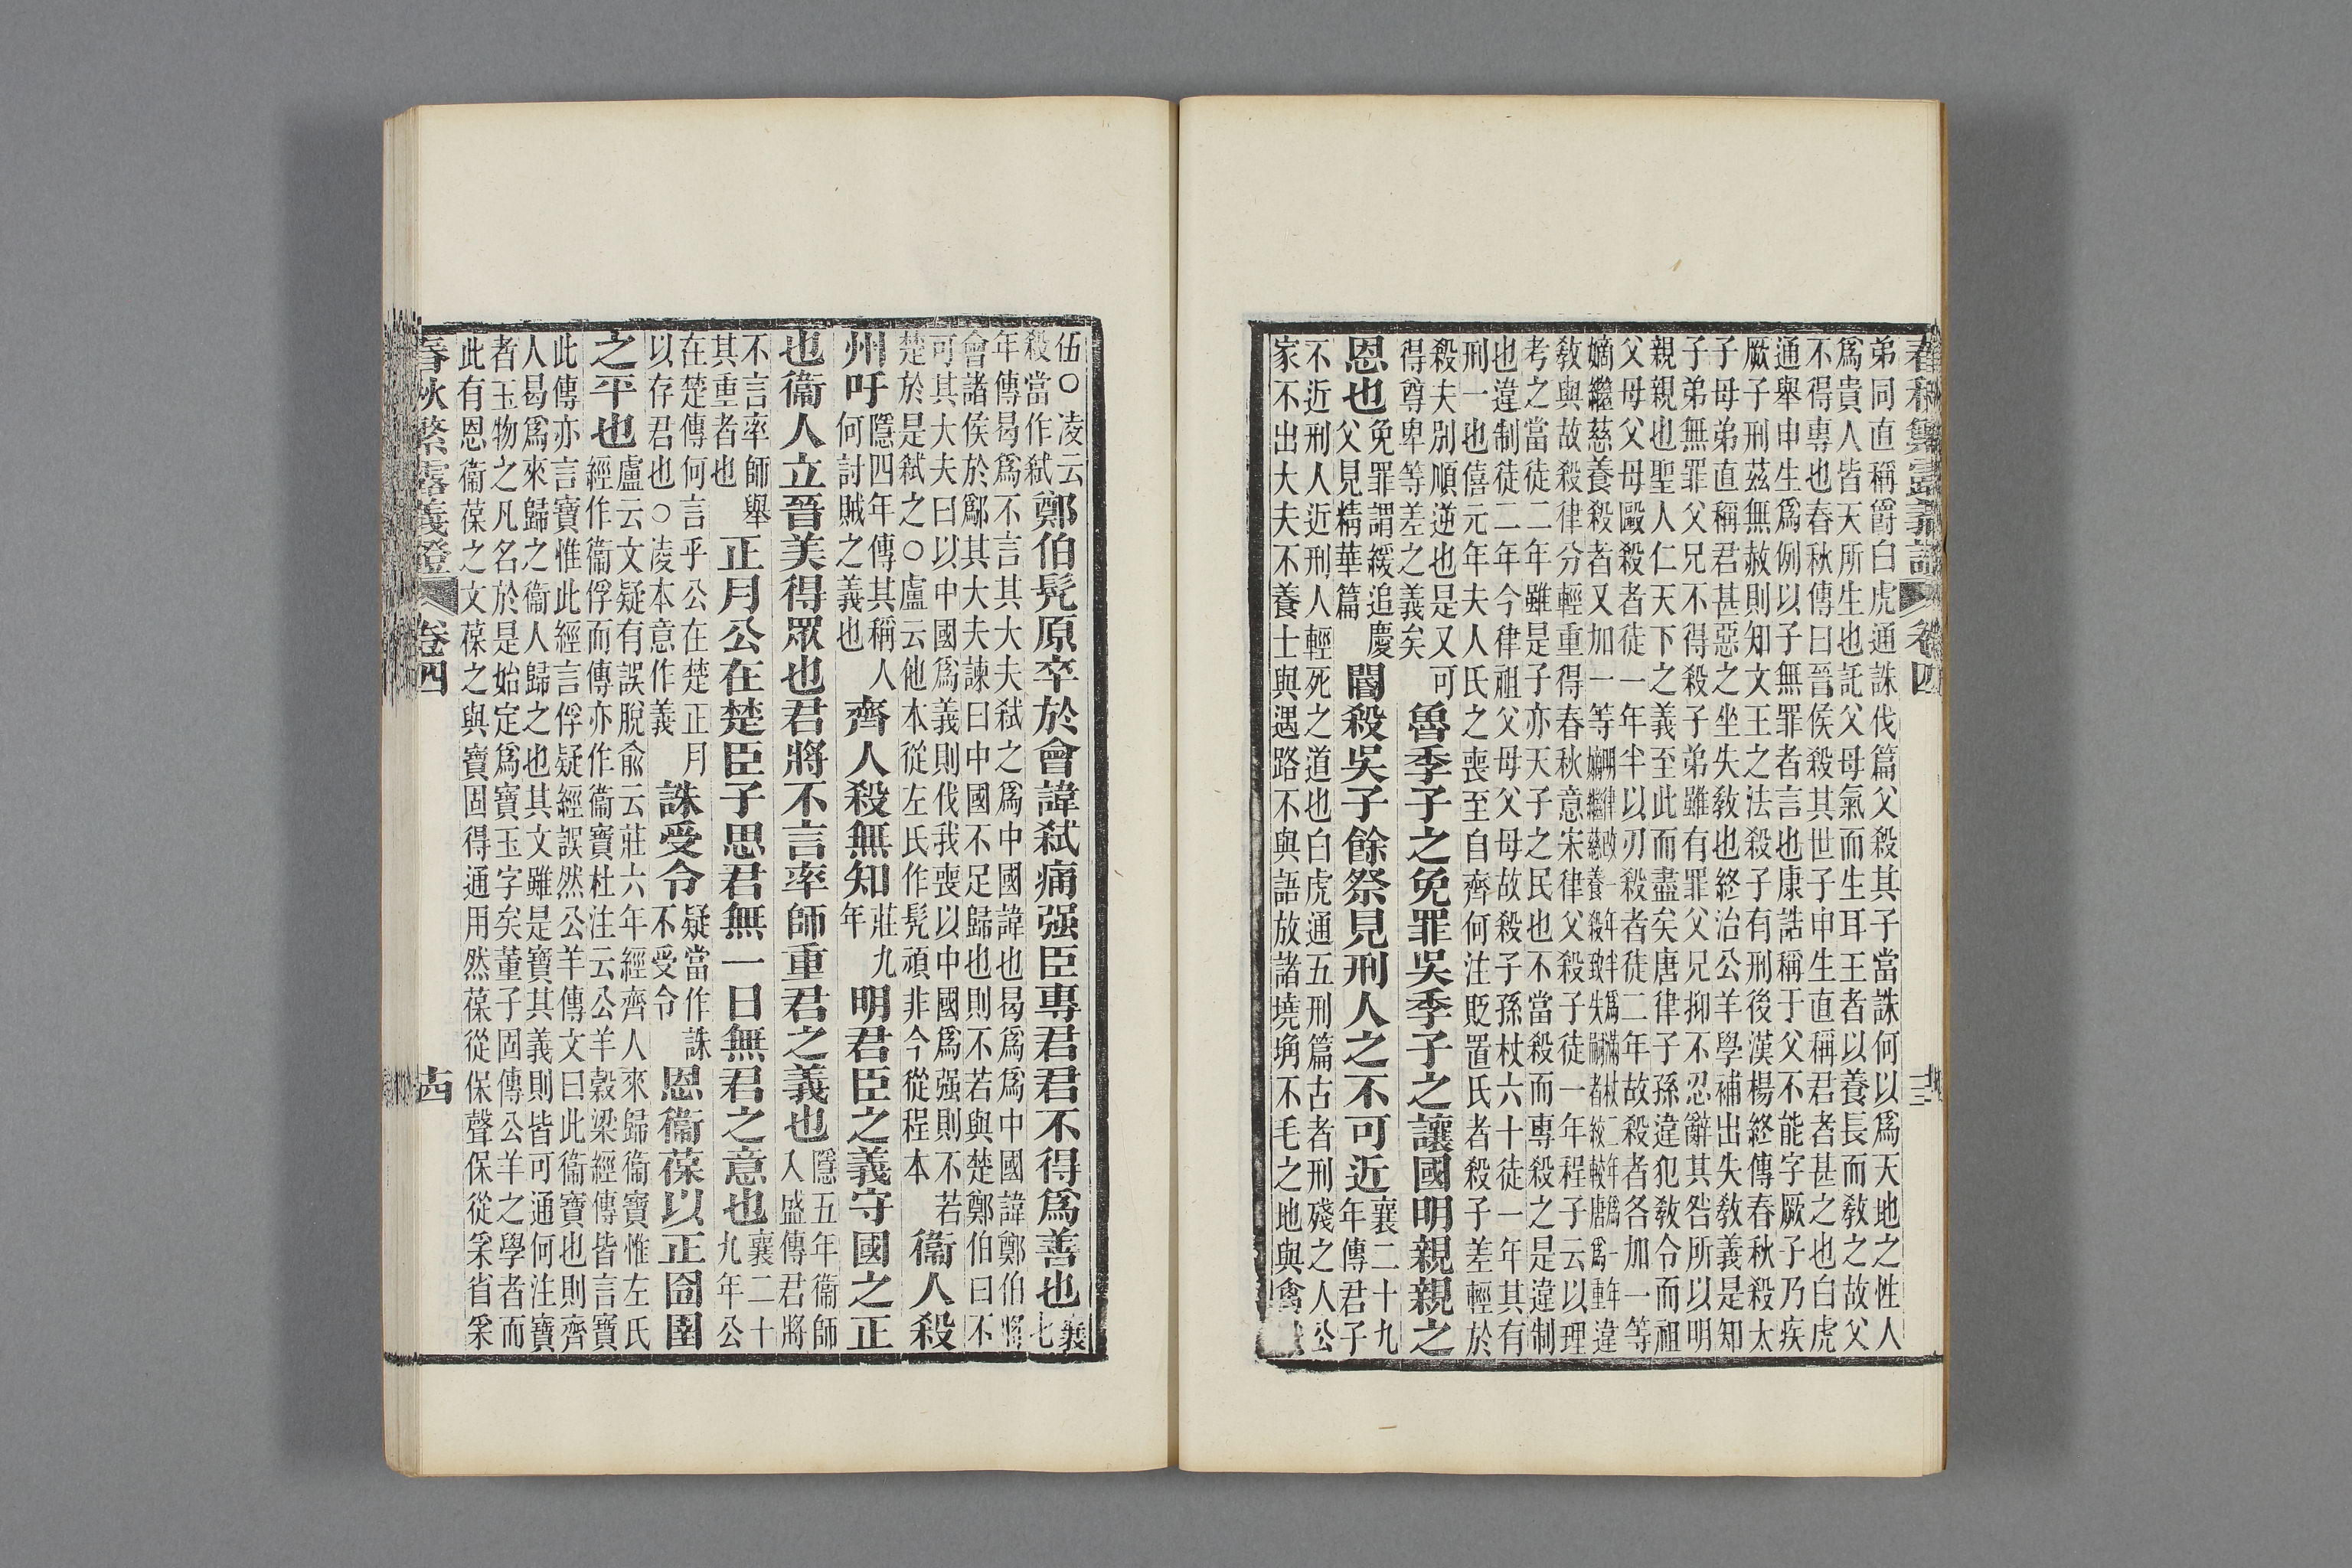 春秋繁露義證 卷四 十三
弟同直稱爵白虎通誅伐篇父殺其子當誅何以爲天地之性人
爲貴人皆天所生也託父母氣而生耳王者以養長而敎之故父
不得專也春秋傳曰晉侯殺其世子申生直稱君者甚之也白虎
通舉申生爲例以子無罪者言也康誥稱于父不能字厥子乃疾
厥子刑茲無赦則知文王之法殺子有刑後漢楊終傳春秋殺太
子母弟直稱君甚惡之坐失敎也終治公羊學補出失敎義是知
子弟無罪父兄不得殺子弟雖有罪父兄抑不忍辭其咎所以明
親親也聖人仁天下之義至此而盡矣唐律子孫違犯敎令而祖
父母父母毆殺者徒一年半以刃殺者徒二年故殺者各加一等
嫡繼慈養殺者又加一等明律改一年半爲滿杖二年爲一年嫡繼慈養殺致失嗣者絞較唐爲重違
敎與故殺律分輕重得春秋意宋律父殺子徒一年程子云以理
考之當徒二年雖是子亦天子之民也不當殺而專殺之是違制
也違制徒二年今律祖父母父母故殺子孫杖六十徒一年其有
刑一也僖元年夫人氏之喪至自齊何注貶置氏者殺子差輕於
殺夫別順逆也是又可
得尊卑等差之義矣
魯季子之免罪吳季子之讓國明親親之
恩也免罪謂緩追慶父見精華篇閽殺吳子餘祭見刑人之不可近襄二十九年傳君子
不近刑人近刑人輕死之道也白虎通五刑篇古者刑殘之人公
家不出大夫不養士與遇路不與語放諸墝埆不毛之地與禽
伍○凌云殺當作弒鄭伯髡原卒於會諱弒痛强臣專君君不得爲善也襄七
年傳曷爲不言其大夫弒之爲中國諱也曷爲爲中國諱鄭伯將
會諸侯於鄬其大夫諫曰中國不足歸也則不若與楚鄭伯曰不
可其大夫曰以中國爲義則伐我喪以中國爲强則不若
楚於是弒之○盧云他本從左氏作髡頑非今從程本
衞人殺
州吁隱四年傳其稱人何討賊之義也齊人殺無知莊九年明君臣之義守國之正
也衞人立晉美得眾也君將不言率師重君之義也隱五年衞師入盛傳君將
不言率師舉其重者也正月公在楚臣子思君無一日無君之意也襄二十九年公
在楚傳何言乎公在楚正月以存君也○凌本意作義誅受令疑當作誅不受令恩衞葆以正囹圄
之平也盧云文疑有誤脫俞云莊六年經齊人來歸衞寶惟左氏經作衞俘而傳亦作衞寶杜注云公羊穀梁經傳皆言寶
此傳亦言寶惟此經言俘疑經誤然公羊傳文曰此衞寶也則齊
人曷爲來歸之衞人歸之也其文雖是寶其義則皆可通何注寶
者玉物之凡名於是始定爲寶玉字矣董子固傳公羊之學者而
此有恩衞葆之文葆之與寶固得通用然葆從保聲保從采省采
春秋繁露義證 卷四 十四